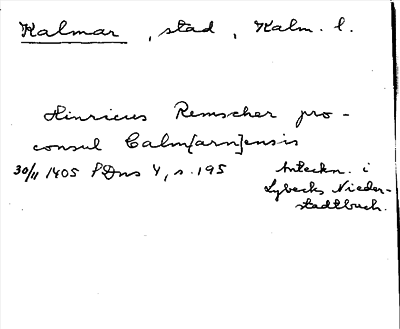 Kalmar, stad, Kalm. l.
Hinricus Remscher pro-
consul Calm[arn]ensis
30/11 1405 SDns 4, s. 195
Anteckn. i
Lybecks Nieder-
stadtbuch.